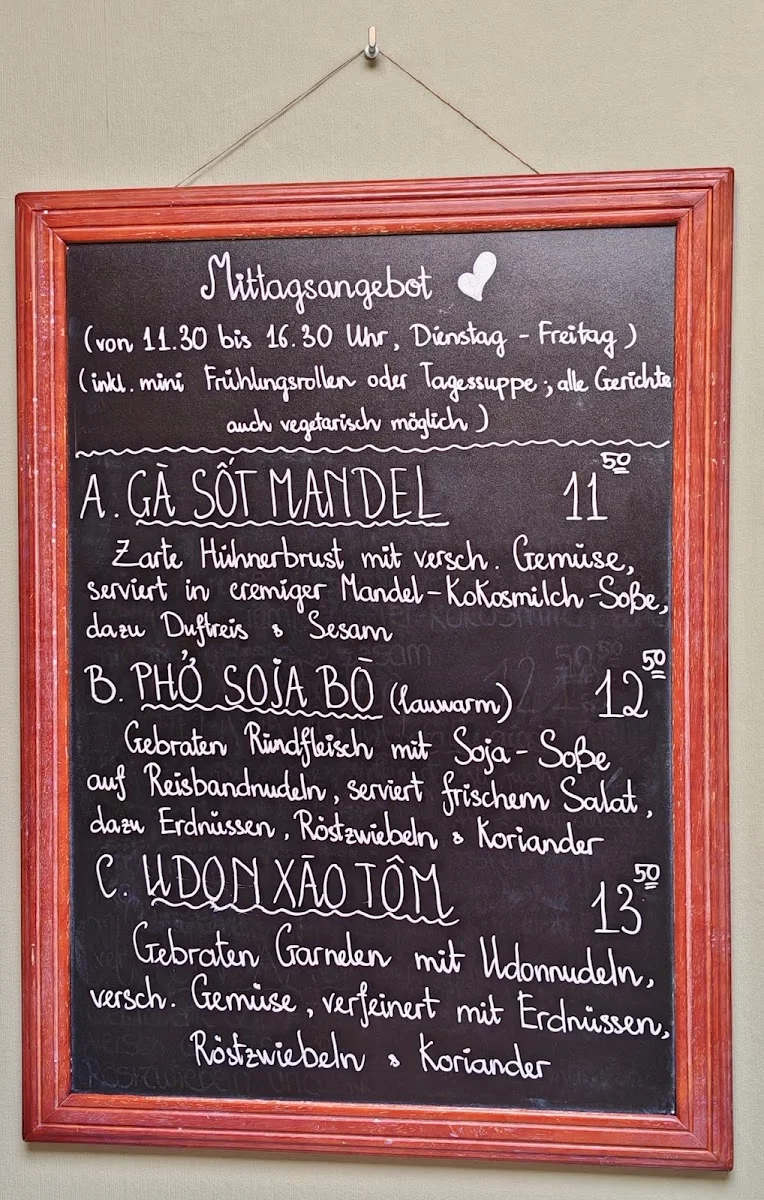 Mittagsangebot
(von 11.30 bis 16.30 Uhr, Dienstag - Freitag)
(inkl. mini Frühlungsrollen oder Tagessuppe; alle Gerichte
auch vegetarisch möglich)
A. GÀ SỐT MANDEL 11 50
Zarte Hühnerbrust mit versch. Gemüse,
serviert in cremiger Mandel-Kokosmilch-Soße,
dazu Duftreis & Sesam
B. PHỞ SOJA BÒ (lauwarm) 12 50
Gebraten Rindfleisch mit Soja-Soße
auf Reisbandnudeln, serviert frischem Salat,
dazu Erdnüssen, Röstzwiebeln & Koriander
C. UDON XÀO TÔM 13 50
Gebraten Garnelen mit Udonnudeln,
versch. Gemüse, verfeinert mit Erdnüssen,
Röstzwiebeln & Koriander